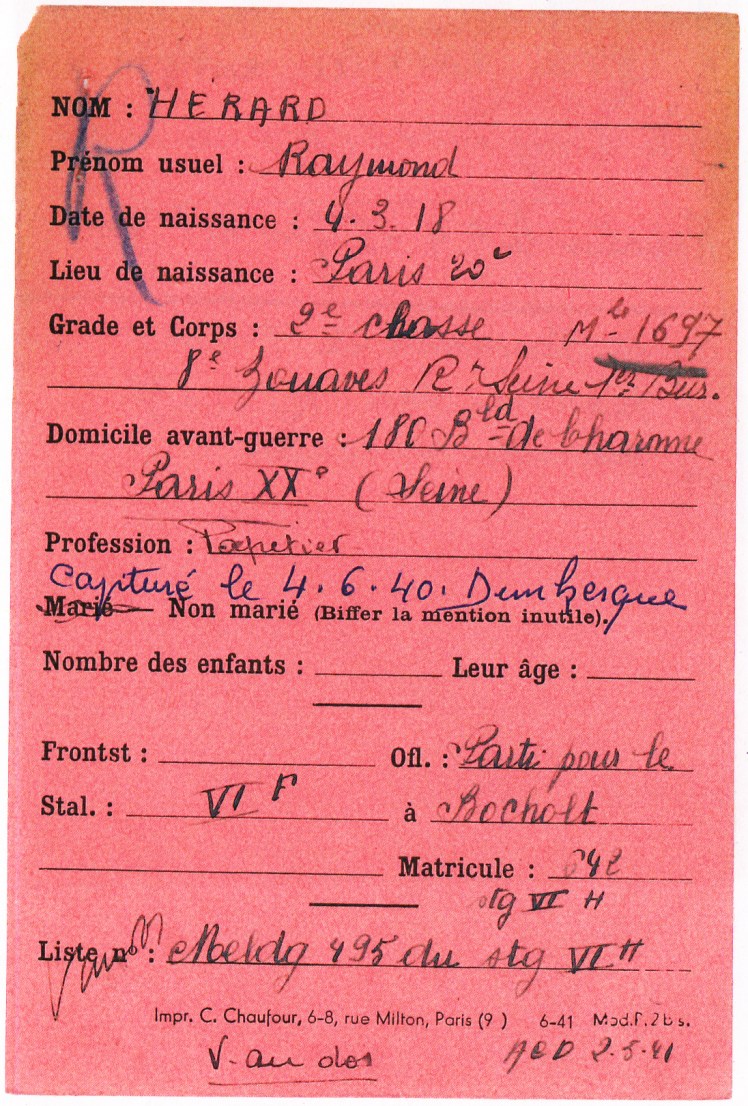 R
NOM : HERARD
Prénom usuel : Raymond
Date de naissance : 4.3.18
Lieu de naissance : Paris 20e
Grade et Corps : 2e classe Mle 1697
8e Zouaves Rt Seine 1er Bur.
Domicile avant-guerre : 180 Bld de Charonne
Paris XXe (Seine)
Profession : Papetier
Capturé le 4.6.40. Dunkerque
Marié Non marié (Biffer la mention inutile).
Nombre des enfants : Leur âge :
Frontst : Ofl. : Parti pour le
Stal. : VI F à Bocholt
Matricule : 642
stg VI H
Liste no : Meldg 495 du stg VI H
Impr. C. Chaufour, 6-8, rue Milton, Paris (9 ) 6-41 Mod.P.2bs.
V. au dos ACD 2.5.41